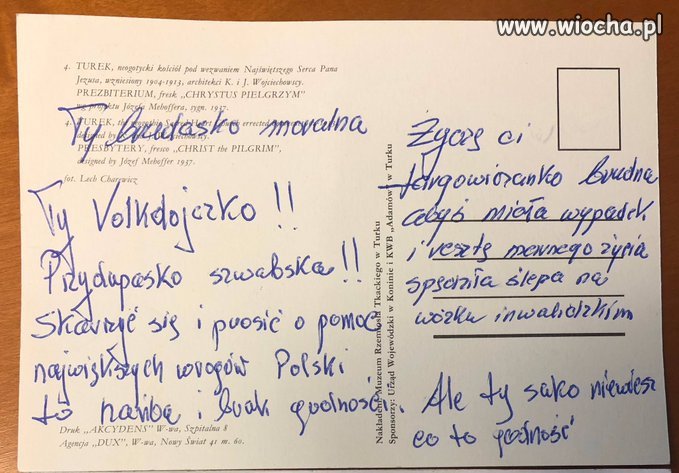 www.wiocha.pl
4. TUREK, neogotycki kościół pod wezwaniem Najświętszego Serca Pana
Jezusa, wzniesiony 1904-1913, architekci K. i J. Wojciechowscy.
PREZBITERIUM, fresk „CHRYSTUS PIELGRZYM"
wg projektu Józefa Mehoffera, sygn. 1937.
4. TUREK, the
errected
designed by
PRESBYTERY, fresco „CHRIST the PILGRIM",
designed by Józef Mehoffer 1937.
fot. Lech Charewicz
Ty brudasko moralna
Ty Volkdojczko !!
Przydupasko szwabska !!
Skarżyć się i prosić o pomoc
największych wrogów Polski
to hańba i brak godności
Druk „AKCYDENS" W-wa, Szpitalna 8
Agencja „DUX", W-wa, Nowy Świat 41 m. 60.
Nakładem Muzeum Rzemiosła Tkackiego w Turku
Sponsorzy: Urząd Wojewódzki w Koninie i KWB „Adamów" w Turku
Życzę ci
targowiczanko brudna
abyś miała wypadek
i resztę marnego życia
spędziła ślepa na
wózku inwalidzkim
Ale ty suko niewiesz
co to godność